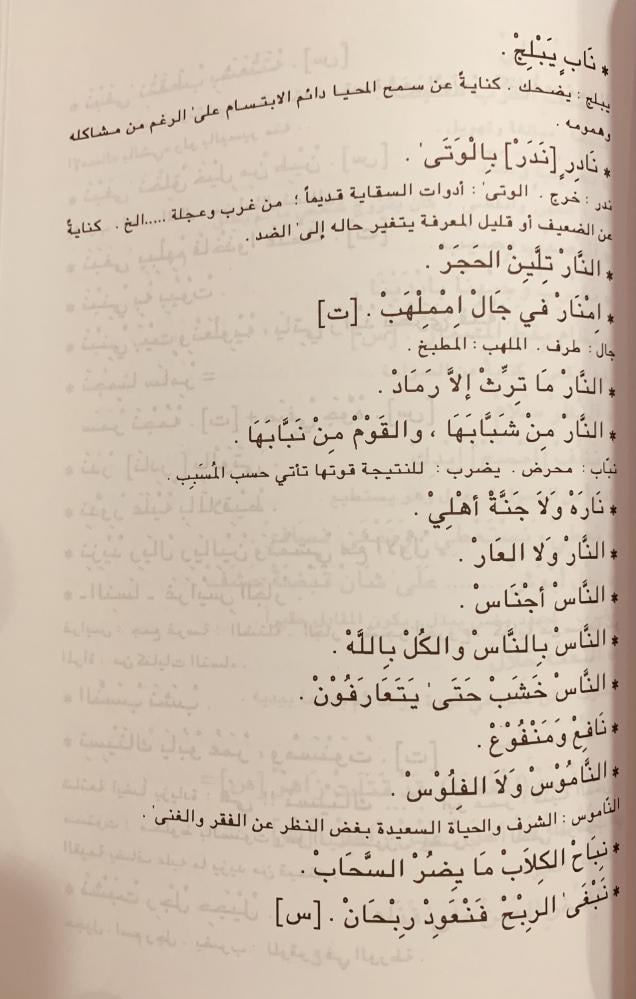 * نَابٍ يَبْلِجْ .
يبلج : يضحك . كنايةً عن سمح المحيا دائم الابتسام على الرغم من مشاكله
وهمومه .
* نَادِرٍ [نَدَرْ] بِالْوَتَى .
ندر : خرج . الوتى : أدوات السقاية قديماً ؛ من غرب وعجلة .....الخ . كنايةً
عن الضعيف أو قليل المعرفة يتغير حاله إلى الضد .
* النَّارْ تِلَّيِنْ الحَجَرْ .
* اِمْنَارْ في جَالْ اِمْمِلْهَبْ . [ت]
جال : طرف . الملهب : المطبخ .
* النَّارْ مَا تِرِّثْ إلاَّ رَمَادْ .
* النَّارْ مِنْ شَبَّابَهَا ، والقَوْمْ مِنْ نَبَّابَهَا .
نبّاب : محرض . يضرب : للنتيجة قوتها تأتي حسب المُسَبِب .
* نَارَهْ وَلاَ جَنَّةْ أهْلِيْ .
* النَّارْ وَلا العَارْ .
* النَّاسْ أجْنَاسْ .
* النَّاسْ بِالنَّاسْ والكُلْ بِاللَّهْ .
* النَّاسْ خَشَبْ حَتَى يَتَعَارَفُوْنْ .
* نَافِعْ وَمَنْفُوْعْ .
* النَّامُوْسْ وَلاَ الفِلُوْسْ .
النّاموس : الشرف والحياة السعيدة بغض النظر عن الفقر والغنى .
* نِبَاحْ الكِلاَبْ مَا يِضرُ السَّحَابْ .
* نَبْغَى الرِبْحْ فَنْعَودْ رِبْحَانْ . [س]